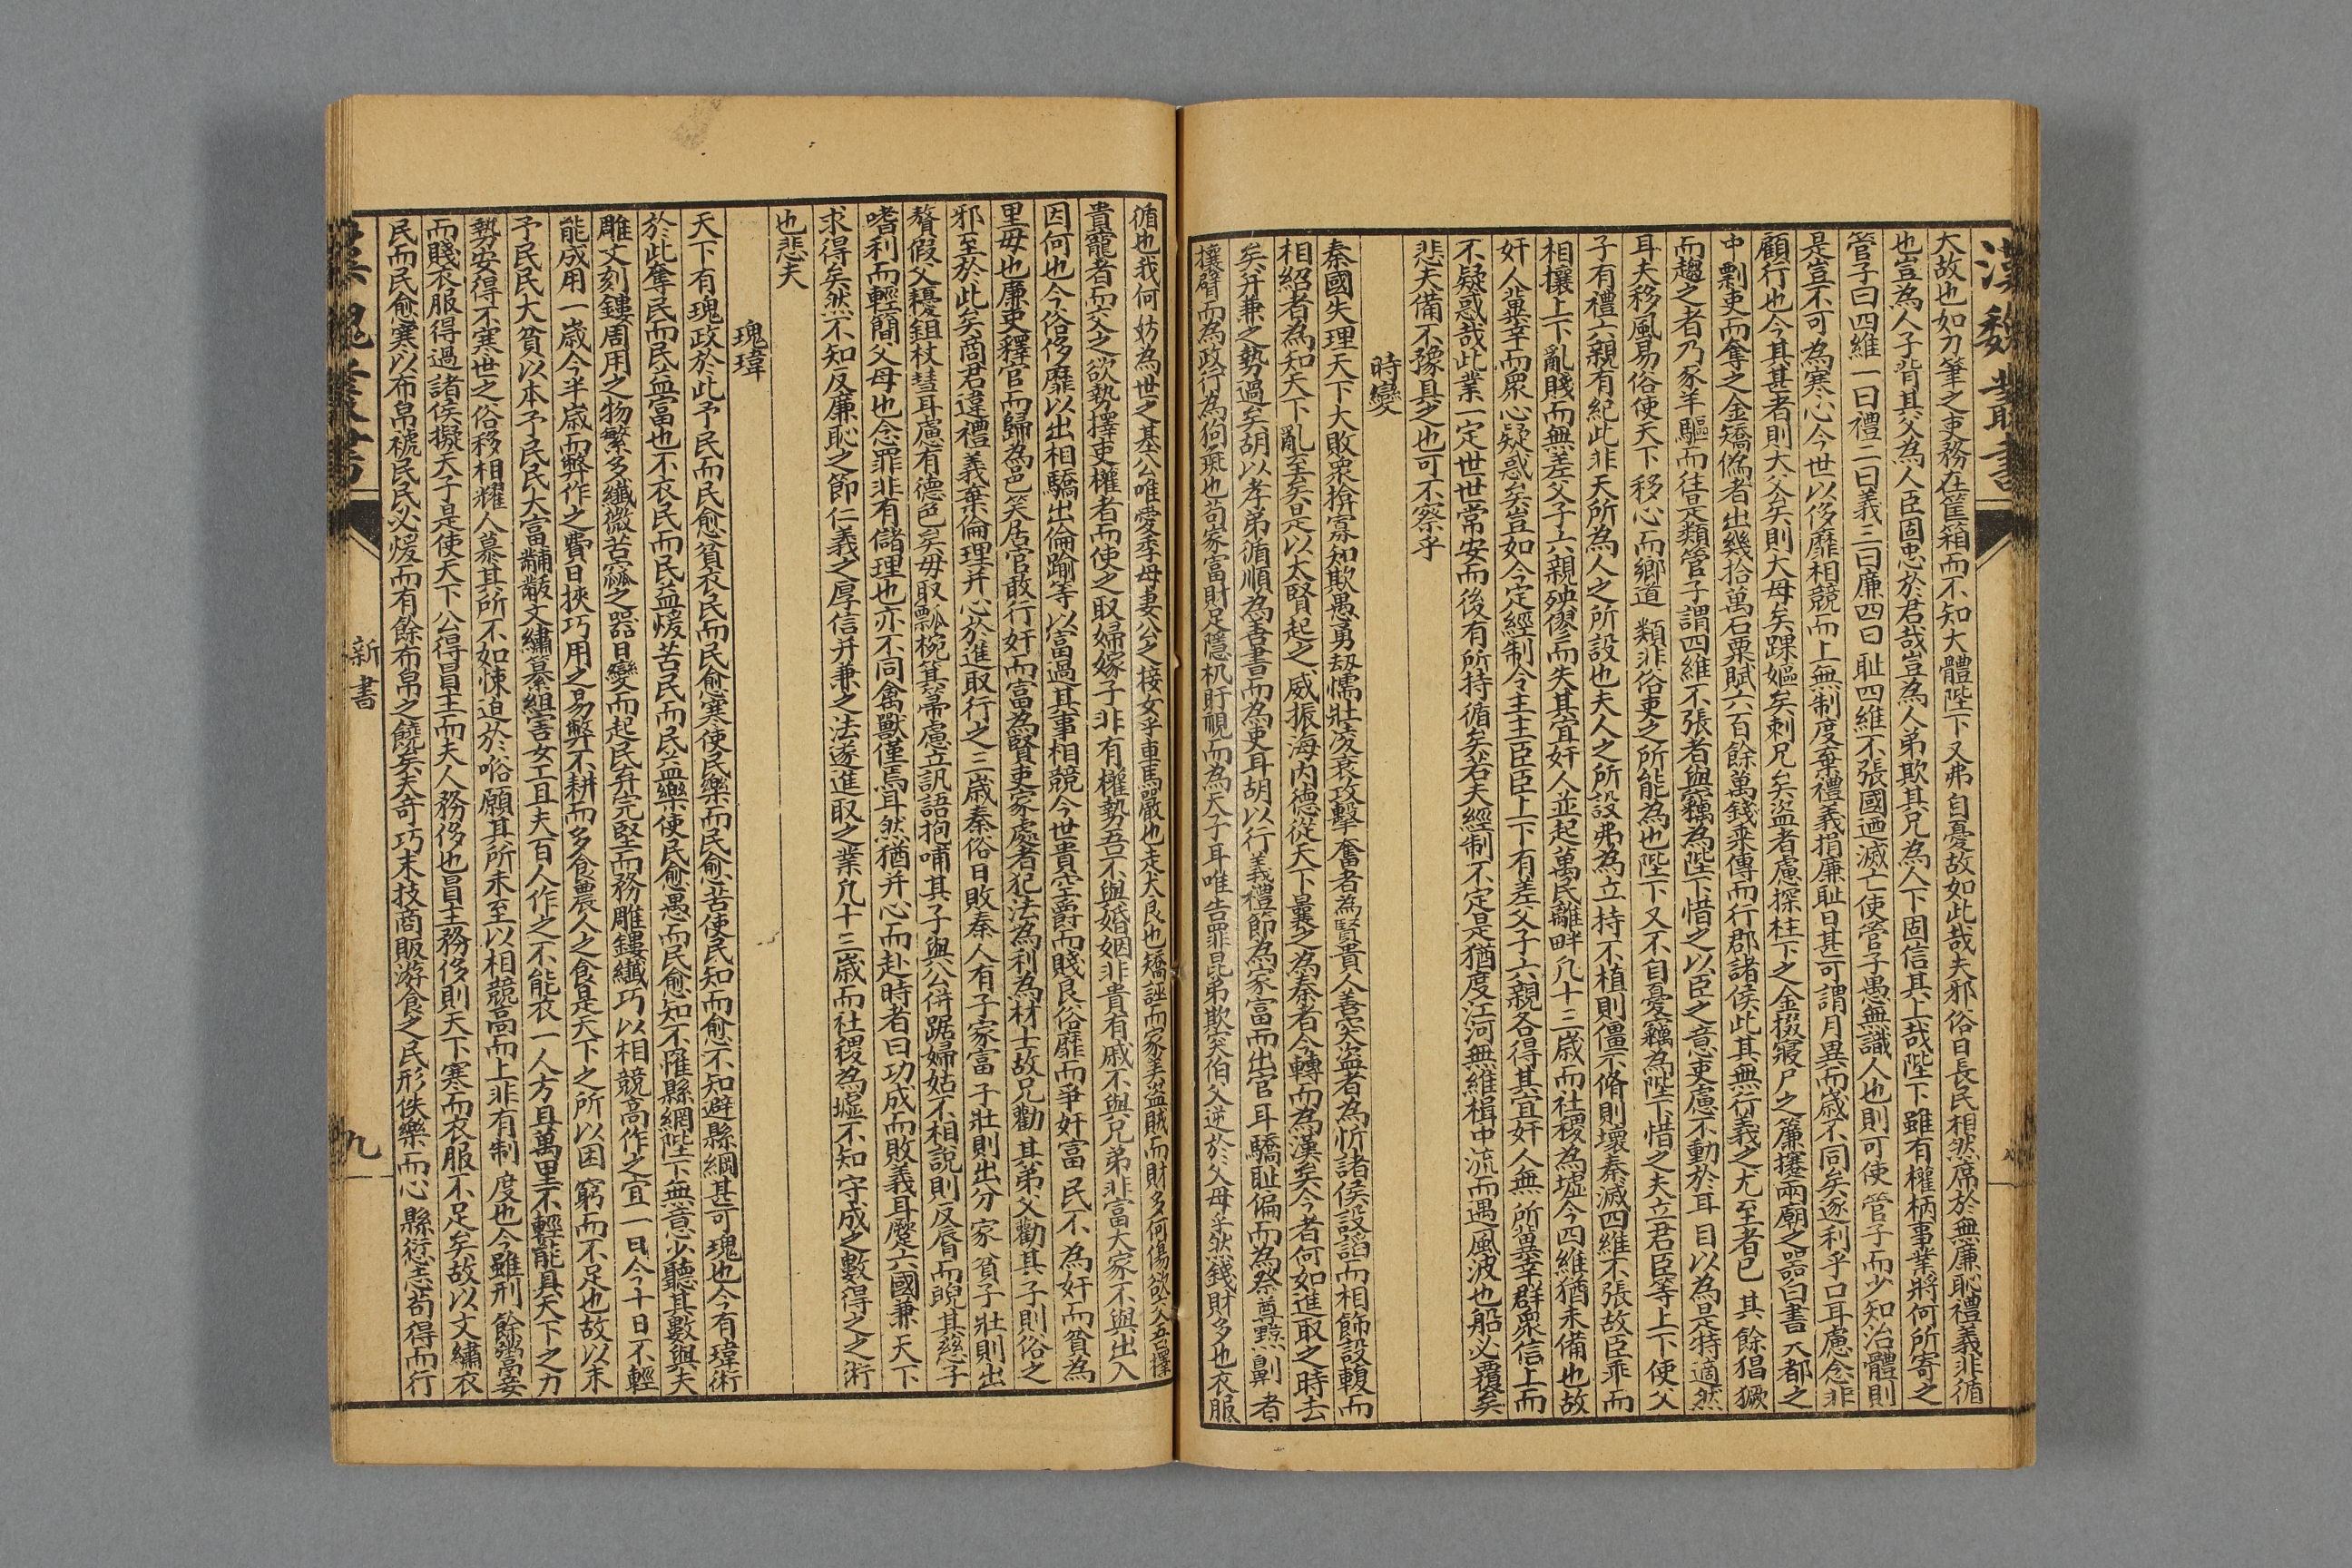 漢魏叢書
大故也如刀筆之吏務在筐箱而不知大體陛下又弗自憂故如此哉夫邪俗日長民相然席於無廉恥禮義非循
也豈為人子背其父為人臣固忠於君哉豈為人弟欺其兄為人下固信其上哉陛下雖有權柄事業將何所寄之
管子曰四維一曰禮二曰義三曰廉四曰恥四維不張國迺滅亡使管子愚無識人也則可使管子而少知治體則
是豈不可為寒心今世以侈靡相競而上無制度棄禮義捐廉恥日甚可謂月異而歲不同矣逐利乎口耳慮念非
顧行也今其甚者則大父矣則大母矣踝嫗矣刺兄矣盜者慮探柱下之金掇寢尸之簾攓兩廟之器白晝大都之
中剽吏而奪之金矯偽者出幾拾萬石粟賦六百餘萬錢乘傳而行郡諸侯此其無行義之尤至者已其餘猖獗
而趨之者乃豕羊驅而往是類管子謂四維不張者與竊為陛下惜之以臣之意吏慮不動於耳目以為是特適然
耳夫移風易俗使天下移心而鄉道類非俗吏之所能為也陛下又不自憂竊為陛下惜之夫立君臣等上下使父
子有禮六親有紀此非天所為人之所設也夫人之所設弗為立持不植則僵不脩則壞秦滅四維不張故臣乖而
相攘上下亂賤而無差父子六親殃僇而失其宜奸人並起萬民離畔凡十三歲而社稷為墟今四維猶未備也故
奸人冀幸而眾心疑惑矣豈如今定經制令主主臣臣上下有差父子六親各得其宜奸人無所冀幸群眾信上而
不疑惑哉此業一定世世常安而後有所持循矣若夫經制不定是猶度江河無維楫中流而遇風波也船必覆矣
悲夫備不豫具之也可不察乎
時變
秦國失理天下大敗眾揜寡知欺愚勇劫懦壯凌衰攻擊奮者為賢貴人善突盜者為忻諸侯設諂而相飾設輹而
相紹者為知天下亂至矣是以大賢起之威振海內德從天下曩之為秦者今轉而為漢矣今者何如進取之時去
矣并兼之勢過矣胡以孝弟循順為善書而為吏耳胡以行義禮節為家富而出官耳驕恥偏而為祭尊黥劓者
攘臂而為政行為狗彘也苟家富財足隱机盱視而為天子耳唯告罪昆弟欺突伯父逆於父母乎然錢財多也衣服
循也我何妨為世之基公唯愛季母妻公之接女乎車馬嚴也走犬良也矯誣而家美盜賊而財多何傷欲交吾擇
貴寵者而交之欲勢擇吏權者而使之取婦嫁子非有權勢吾不與婚姻非貴有戚不與兄弟非富大家不與出入
因何也今俗侈靡以出相驕出倫踰等以富過其事相競今世貴空爵而賤良俗靡而爭奸富民不為奸而貧為
里毋也廉吏釋官而歸為邑笑居官敢行奸而富為賢吏家處者犯法為利為材士故兄勸其弟父勸其子則俗之
邪至於此矣商君違禮義棄倫理并心於進取行之三歲秦俗日敗秦人有子家富子壯則出分家貧子壯則出
贅假父耰鉏杖彗耳慮有德色矣毋取瓢椀箕箒慮立訊語抱哺其子與公併踞婦姑不相說則反脣而睨其慈子
嗜利而輕簡父母也念罪非有儲理也亦不同禽獸僅焉耳然猶并心而赴時者曰功成而敗義耳蹙六國兼天下
求得矣然不知反廉恥之節仁義之厚信并兼之法遂進取之業凡十三歲而社稷為墟不知守成之數得之之術
也悲夫
瑰瑋
天下有瑰政於此予民而民愈貧衣民而民愈寒使民樂而民愈苦使民知而愈不知避縣網甚可瑰也今有瑋術
於此奪民而民益富也不衣民而民益煖苦民而民益樂使民愈愚而民愈知不罹縣網陛下無意少聽其數與夫
雕文刻鏤周用之物繁多纖微苦窳之器日變而起民弃完堅而務雕鏤纖巧以相競高作之宜一日今十日不輕
能成用一歲今半歲而弊作之費日挾巧用之易弊不耕而多食農人之食是天下之所以困窮而不足也故以末
予民民大貧以本予民民大富黼黻文繡纂組害女工且夫百人作之不能衣一人方且萬里不輕能具天下之力
勢安得不寒世之俗移相耀人慕其所不如悚迫於俗願其所未至以相競高而上非有制度也今雖刑餘鬻妾
而賤衣服得過諸侯擬天子是使天下公得冒主而夫人務侈也冒主務侈則天下寒而衣服不足矣故以文繡衣
民而民愈寒以布帛褫民民必煖而有餘布帛之饒矣夫奇巧末技商販游食之民形佚樂而心縣愆志苟得而行
漢魏叢書
新書
九